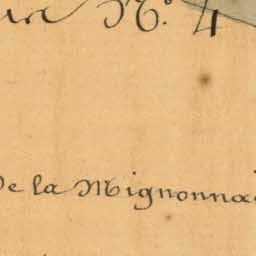 N.º 4
De la Mignonna